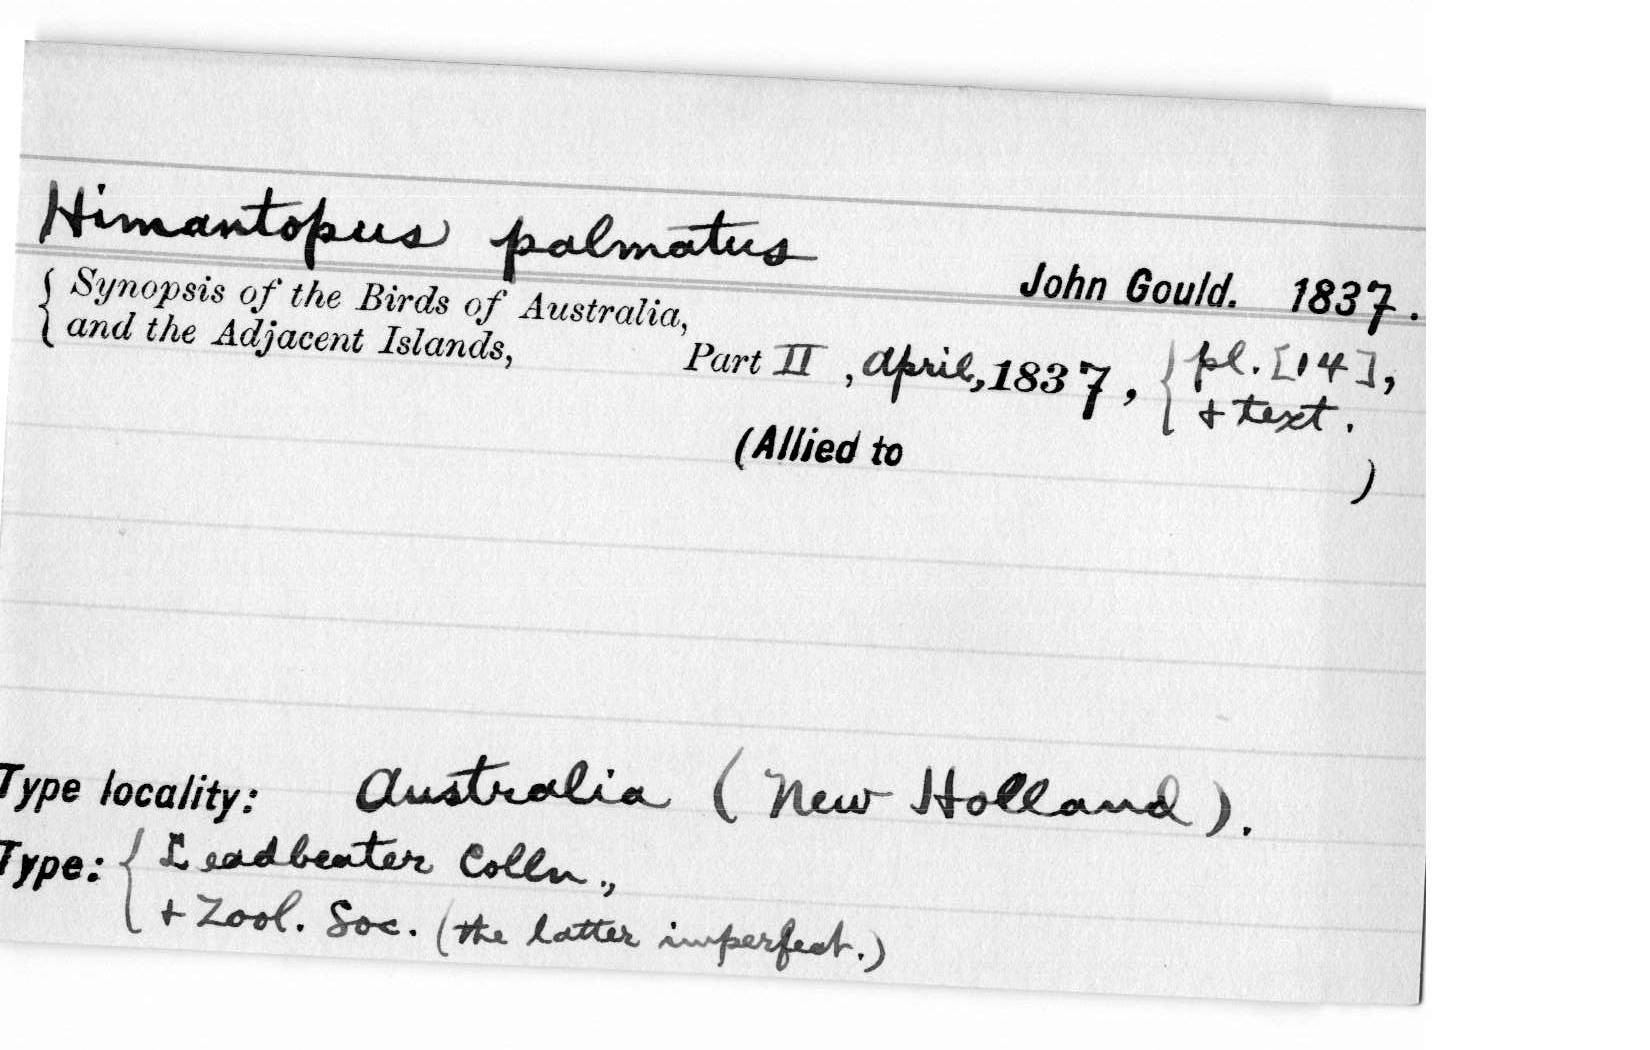 Himantopus palmatus
John Gould. 1837.
{ Synopsis of the Birds of Australia,
and the Adjacent Islands,
Part II, April, 1837, { pl. [14],
+ text.
(Allied to )
Type locality: Australia (New Holland).
Type: { Leadbeater Colln.,
+ Zool. Soc. (the latter imperfect.)